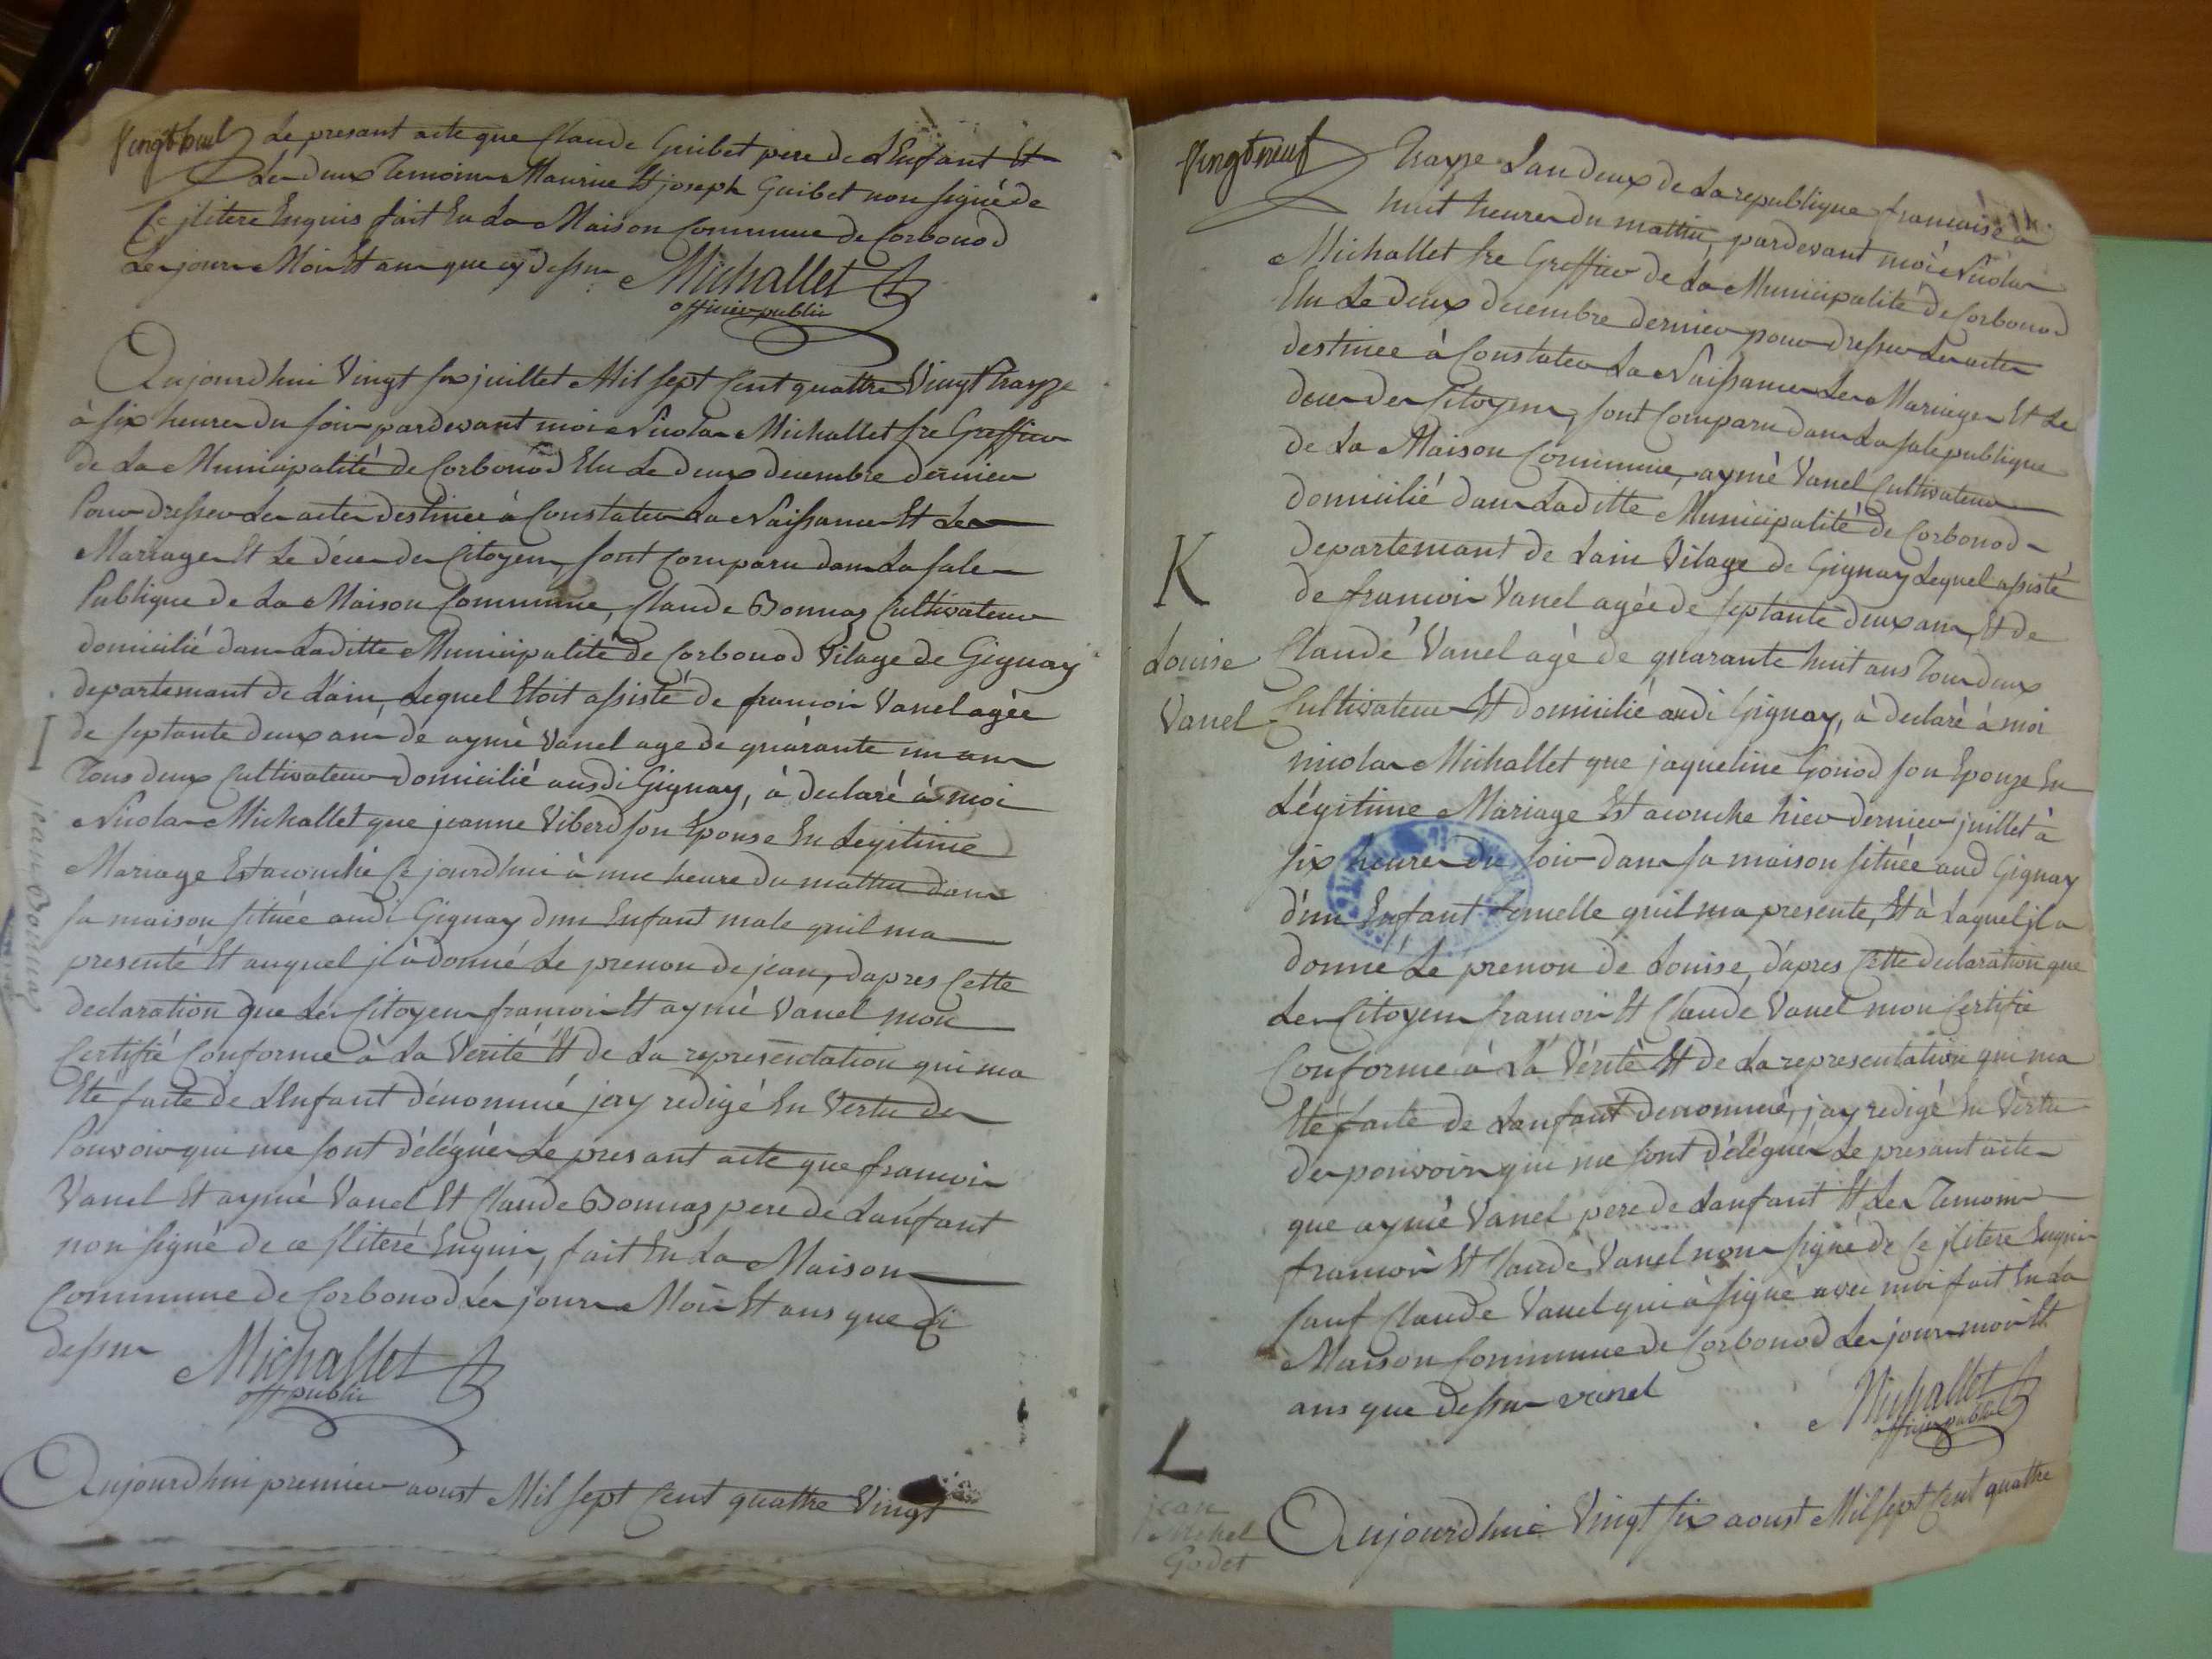 Vingt huit
Le presant acte que Claude Guibet pere de L'Enfant Et
Les deux Temoins Maurice Et joseph Guibet non signé de
Ce jliteré Enquis fait En La Maison Commune de Corbonod
Les jour Mois Et an que cy dessus Michallet
officier public
Aujourdhui Vingt six juillet Mil sept Cent quattre Vingt Trayze
à six heures du soir pardevant moi Nicolas Michallet sre Greffier
de La Municipalité de Corbonod Elu Le deux decembre dernier
Pour dresser Les actes destinee à Constater La Naissances Et Les
Mariages Et Le déces des Citoyens, sont Comparu dans La sale
Publique de La Maison Commune, Claude Bonnaz Cultivateur
domicilié dans Laditte Municipalité de Corbonod Vilage de Gignay
departemant de L'ain Lequel Etoit assisté de francois Vanel agée
de septante deux ans de aymé Vanel age de quarante un ans
Tous deux Cultivateur domicilié ausdi Gignay, à declaré à moi
Nicolas Michallet que jeanne Viberd son Epouse En Legitime
Mariage Est acouché Ce jourdhui à une heure du mattin dans
sa maison située audi Gignay d'un Enfant male quil ma
presenté Et auquel jl à donné Le prenon de jean, d'apres Cette
declaration que Les Citoyens francois Et aymé Vanel mon
Certifié Conforme à La Verité Et de La representation qui ma
Eté faite de L'Enfant dénommé jay redigé En Vertu des
Pouvoir qui me sont délégués Le presant acte que francois
Vanel Et aymé Vanel Et Claude Bonnaz pere de Lanfant
non signé de ce jliteré Enquis, fait En La Maison
Commune de Corbonod Les jours Mois Et ans que Ci
dessus Michallet
off public
Aujourdhui premier aoust Mil sept Cent quattre Vingt
I
jean Bonnaz
Vingt neuf
Trayze Lan deux de La republique francaise à
huit heures du mattin, pardevant moi Nicolas
Michallet sre Greffier de La Municipalité de Corbonod
Elu Le deux decembre dernier pour dresser Les actes
destinee à Constater La Naissances Les Mariages Et Le
deces des Citoyens, sont Comparu dans La sale publique
de La Maison Commune, aymé Vanel Cultivateur
domicilié dans Laditte Municipalité de Corbonod
departemant de Lain Vilage de Gignay Lequel assisté
de francois Vanel agée de septante deux ans, Et de
Claude Vanel agé de quarante huit ans Tous deux
Cultivateur Et domicilié audi Gignay, à declaré à moi
nicolas Michallet que jaqueline Goriod son Epouze En
Légitime Mariage Est acouche hier dernier juillet à
six heures du soir dans sa maison située aud Gignay
d'un Enfant femelle quil ma presente, Et à Laquel jl a
donné Le prenon de Louise, d'apres Cette declaration que
Les Citoyens francois Et Claude Vanel mon Certifié
Conforme à La Vérité Et de La representation qui ma
Eté faite de Lanfant denommé, jay redigé En Vertu
des pouvoirs qui me sont délégués Le presant acte
que aymé Vanel pere de Lanfant Et Les Temoins
francois Et Claude Vanel non signé de Ce jlitere Enquis
sauf Claude Vanel qui à signé avec moi fait En La
Maison Commune de Corbonod Les jours mois Et
ans que dessus vanel Michallet
officier public
Aujourdhui Vingt six aoust Mil sept Cent quatre
K
Louise
Vanel
L
jean
Michel
Godet